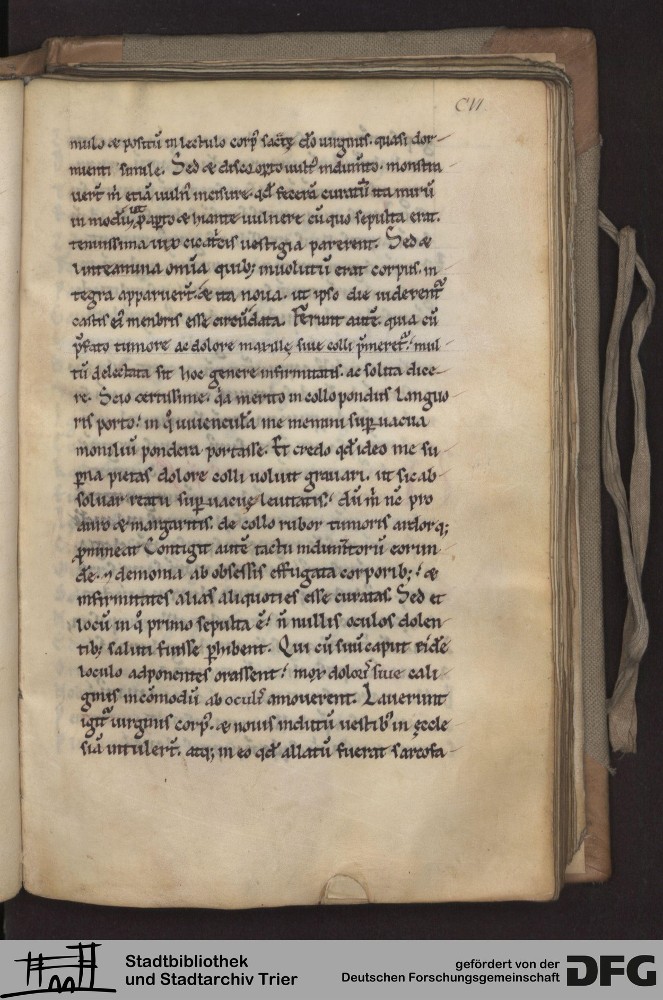 CVI
mulo & positũ in lectulo corp᷒ sacrę dõ uirginis. quasi dor
mienti simile. Sed & discooꝑto uult᷒ indumto. monstra
uerт̃ m̃ etiã uuln᷒ incisure. qđ fecerã curatũ ita mirũ
in modũ, ut ꝓ aꝑto & hiante uulnere cũ quo sepulta erat.
tenuissima uix cicatᵢcis uestigia parerent. Sed &
linteamina om̃ia quib; inuolutũ erat corpus. in
tegra apparuerт̃. & ita noua. ut ipso die uiderent᷑
castis ei᷒ menbris esse circũdata. Ferunt autẽ. quia cũ
p̃fato tumore ac dolore maxillę siue colli p̃meret᷑. mul
tũ delectata sit hoc genere infirmitatis. ac solita dice
re. Scio certissime. qa merito in collo pondus languo
ris porto. in q̊ iuuencula me memini suꝑuacua
moniliũ pondera portasse. Et credo qđ ideo me su
ꝑna pietas dolore colli uoluit grauari. ut sic ab
soluar reatu suꝑuacuę leuitatis. dũ m̃ nc̃ pro
auro & margaritis. de collo rubor tumoris ardorq;
ꝓmineat Contigit autẽ tactu indumтоrũ eorun
dẽ. & demonia ab obsessis effugata corporib;. &
infirmitates alias aliquoties esse curatas. Sed et
locũ in q̊ primo sepulta ẽ. ñ nullis oculos dolen
tib; saluti fuisse ꝑhibent. Qui cũ suũ caput eidẽ
loculo adponentes orassent. mox doloris siue cali
ginis incõmodũ ab oculis amouerent. Lauerunt
igit᷑ uirginis corp᷒. & nouis indutũ uestib᷒ in ęccle
siã intulerт̃. atq; in eo qđ allatũ fuerat sarcofa
Stadtbibliothek
und Stadtarchiv Trier
gefördert von der
Deutschen Forschungsgemeinschaft
DFG